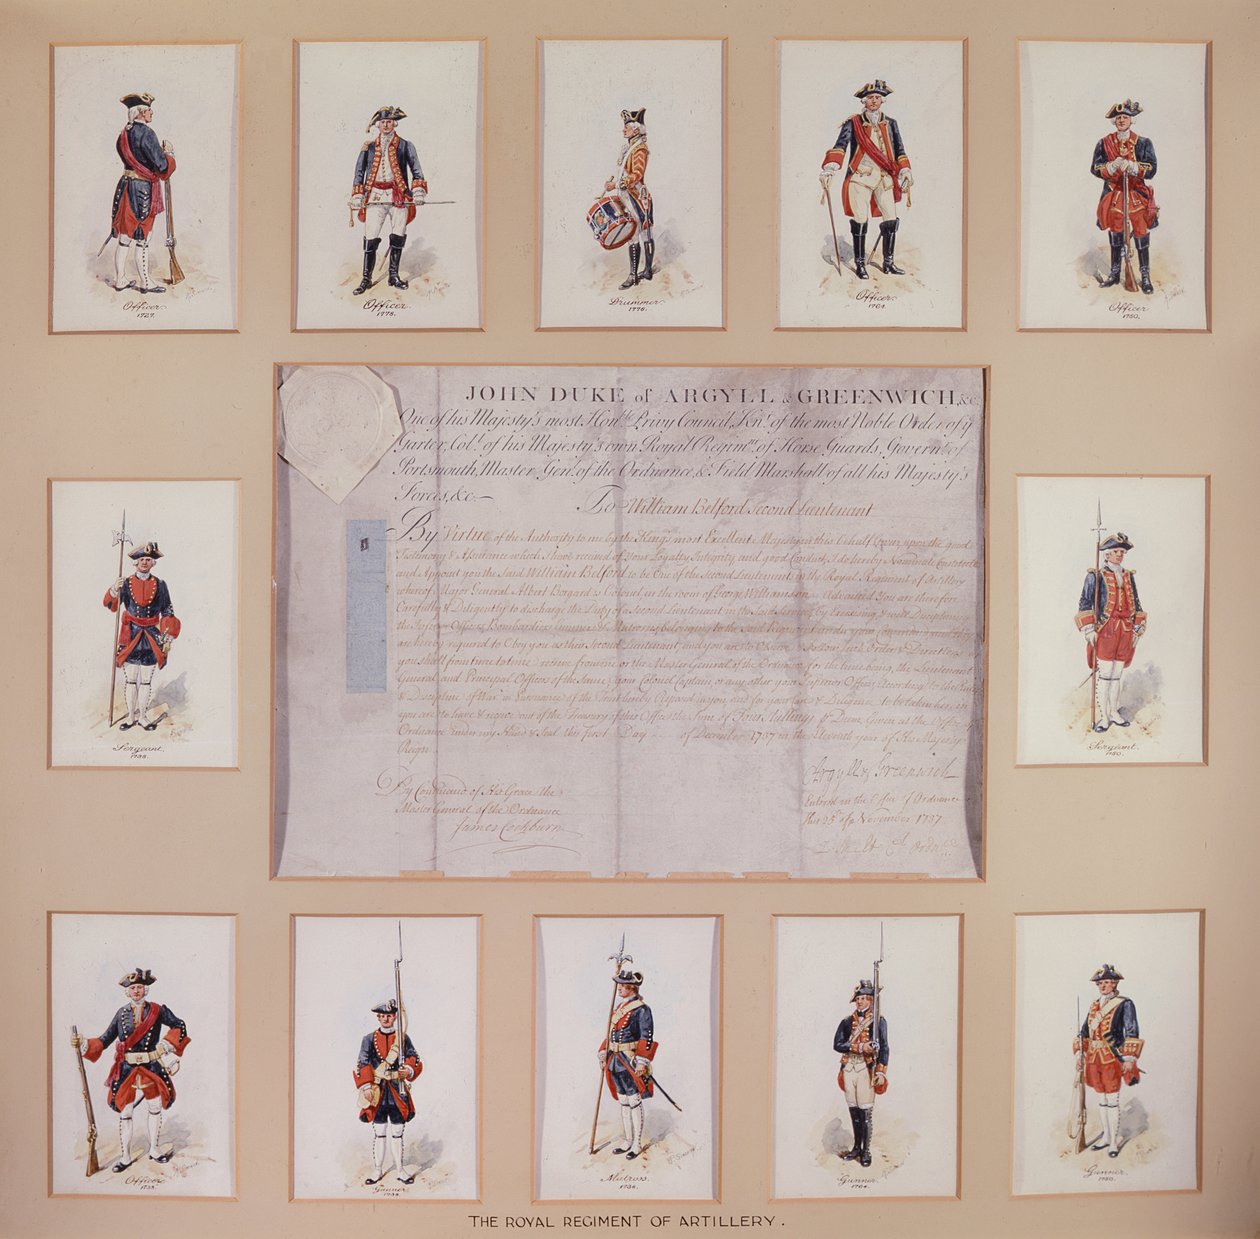 Officer.
1727.
Officer.
1778.
Drummer.
1778.
Officer.
1764.
Officer
1750.
JOHN DUKE of ARGYLL & GREENWICH, &c.
One of his Majesty's most Honble. Privy Council, Knt. of the most Noble Order of ye
Garter, Coll. of his Majesty's own Royal Regimt. of Horse Guards, Governr. of
Portsmouth, Master Genl. of the Ordnance, & Field Marshall of all his Majesty's
Forces, &c
To William Belford Second Lieutenant
By Virtue of the Authority to me by the King's most Excellent Majesty in this behalf Given, upon the good
Testimony & Assurance which I have received of Your Loyalty, Integrity, and good Conduct, I do hereby Nominate Constitute
and Appoint you the Said William Belford to be One of the Second Lieutenants in the Royal Regiment of Artillery
whereof Major General Albert Borgard is Colonel, in the room of George Williamson You are therefore
Carefully & Diligently to discharge the Duty of a Second Lieutenant in the Said
the Officers, Bombardiers, Gunners & Matrosses belonging to the Said Regiment
are hereby required to Obey you as their Second Lieutenant and you are to Observe & follow such Orders & Directions
you shall from time to time receive from me or the Master General of the Ordnance for the time being, the Lieutenant
General and Principal Officers of the Same, Your Colonel Captain or any other your Superior Officer, according to the Rules
& Discipline of War in Pursuance of the Trust hereby Reposed in you and for your Care & Diligence to be taken herein
you are to have & receive out of the Treasury of this Office the Sum of Four Shillings Given at the Office of
Ordnance under my Hand & Seal this First Day of December 1737 in the Eleventh year of His Majesty's
Reign.
Argyll & Greenwich
By Command of His Grace the
Master General of the Ordnance
James Cockburn
Entered in the Office of Ordnance
this 25th of November 1737
Sergeant.
1738.
Sergeant.
1750.
Officer.
1738.
Gunner.
1738.
Matross.
1738.
Gunner.
1764.
Gunner.
1750.
THE ROYAL REGIMENT OF ARTILLERY.